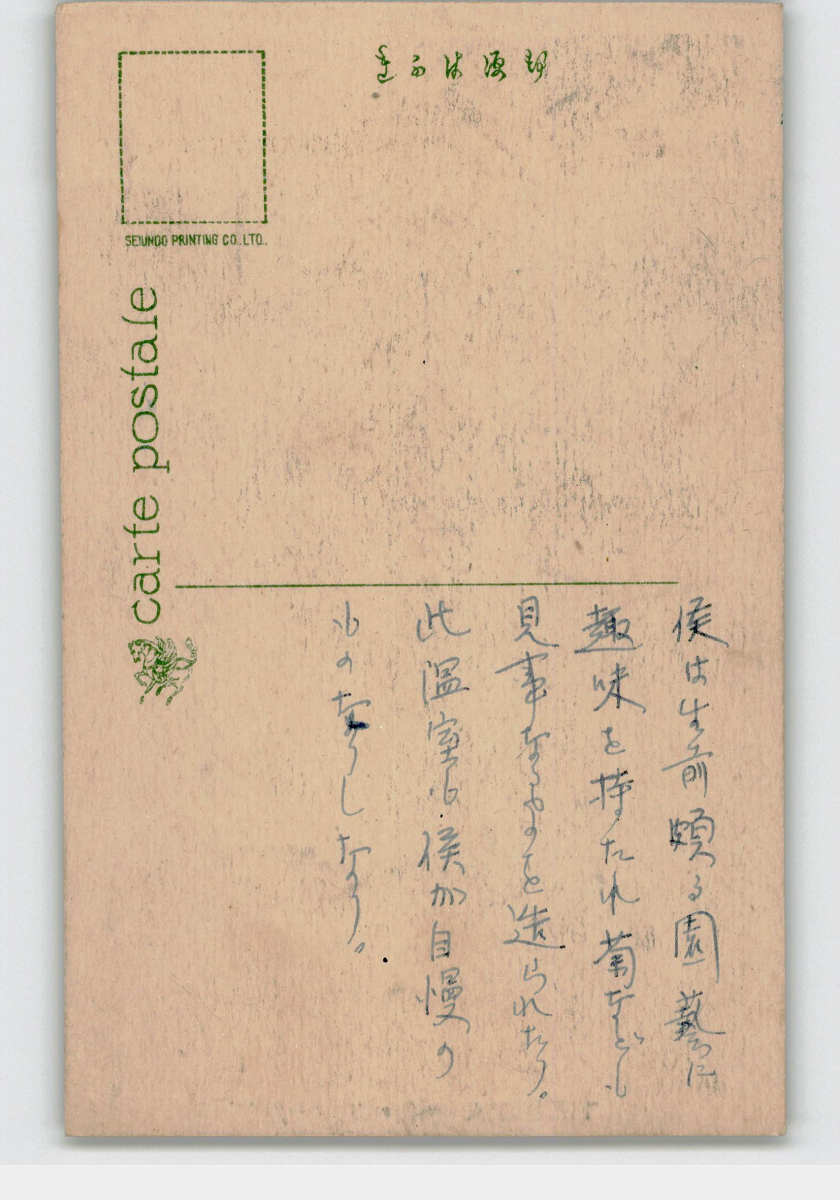 郵便はがき
SEIUNDO PRINTING CO., LTD.
carte postale
侯は生前頗る園藝に
趣味を持たれ菊なども
見事なるものを造られたり。
此温室も侯が自慢の
ものなりしなり。